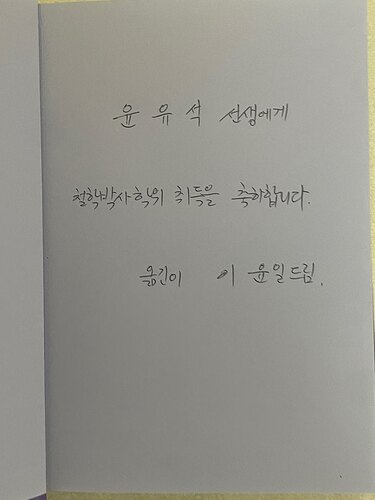 윤 유 석 선생에게
철학박사학위 취득을 축하합니다.
옮긴이 이 윤 일 드림.